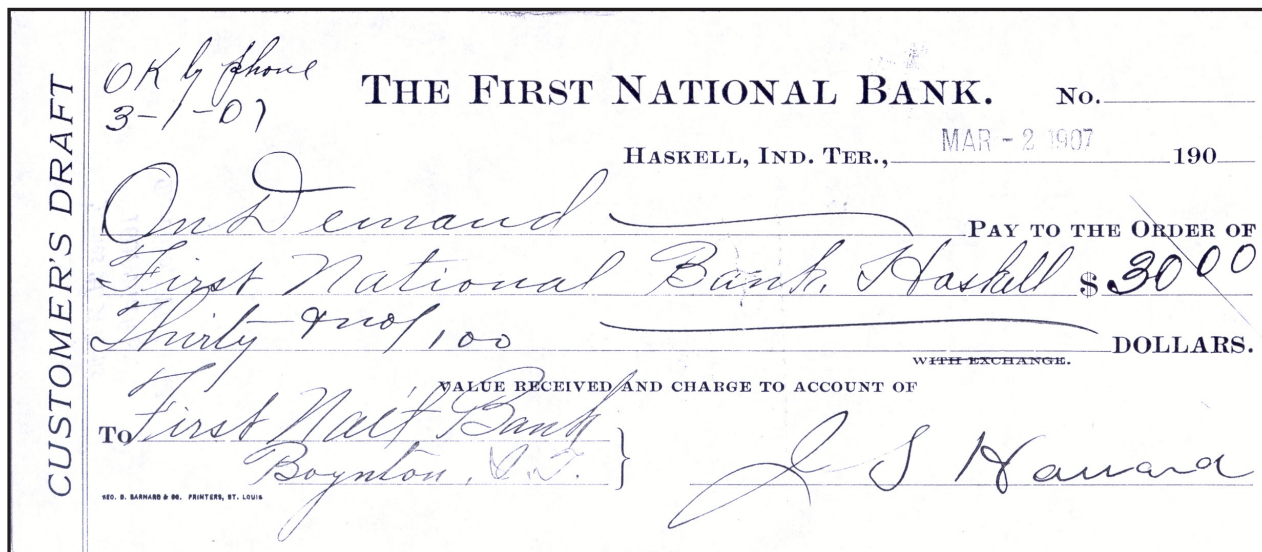 CUSTOMER'S DRAFT
OK by phone
3-1-07
THE FIRST NATIONAL BANK. No.
HASKELL, IND. TER., MAR - 2 1907 190
On Demand PAY TO THE ORDER OF
First National Bank, Haskell $ 30 00
Thirty & no/100 DOLLARS.
WITH EXCHANGE.
VALUE RECEIVED AND CHARGE TO ACCOUNT OF
To First Nat'l Bank
Boynton, I.T.
J S
GEO. D. BARNARD & CO. PRINTERS, ST. LOUIS